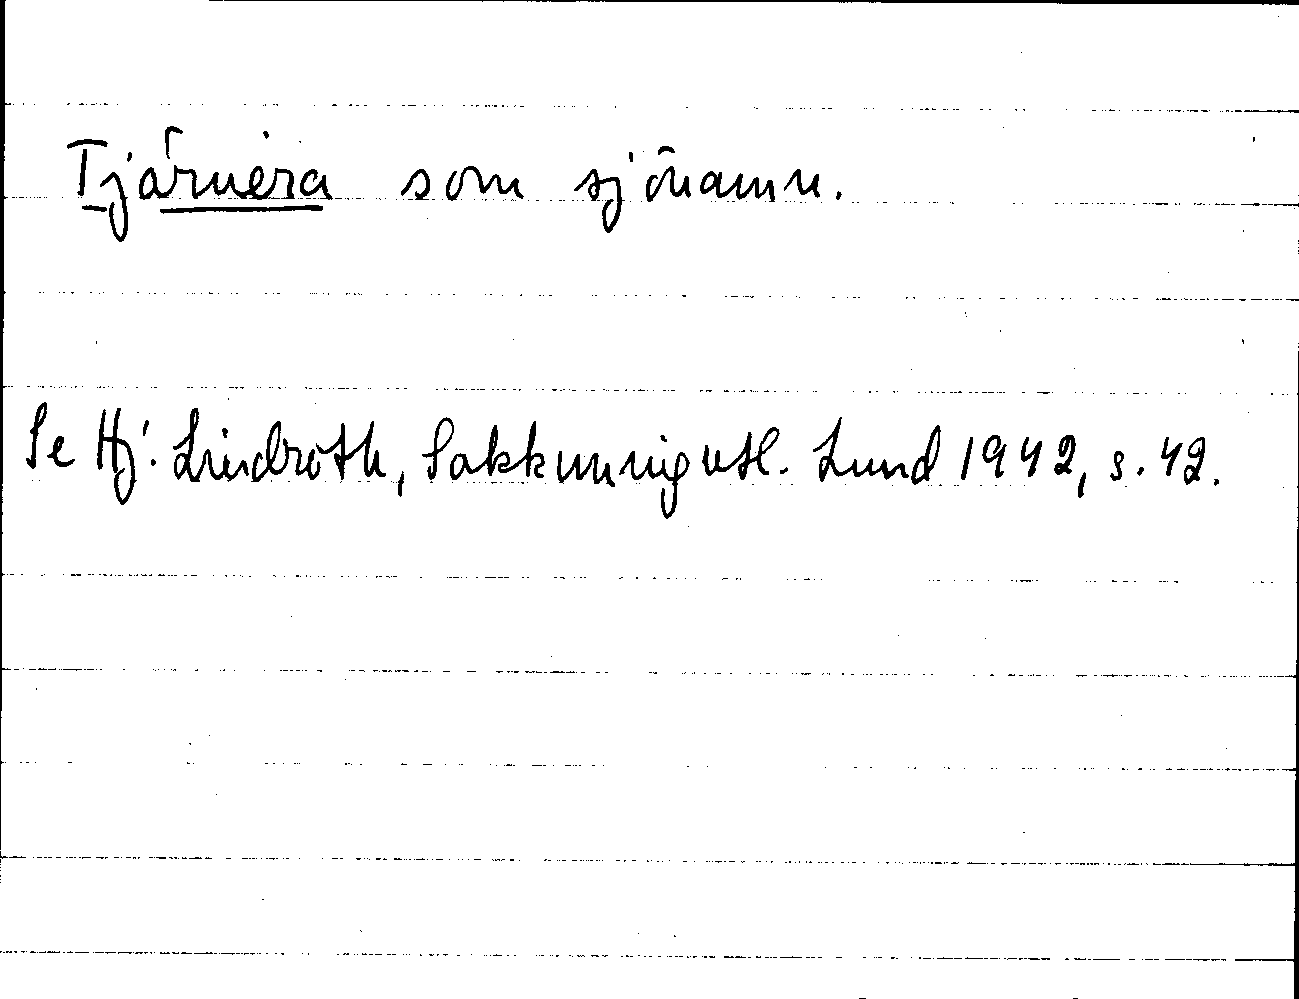 Tjärnera som sjönamn.
Se Hj. Lindroth, Sakkunnigutl. Lund 1942, s. 42.